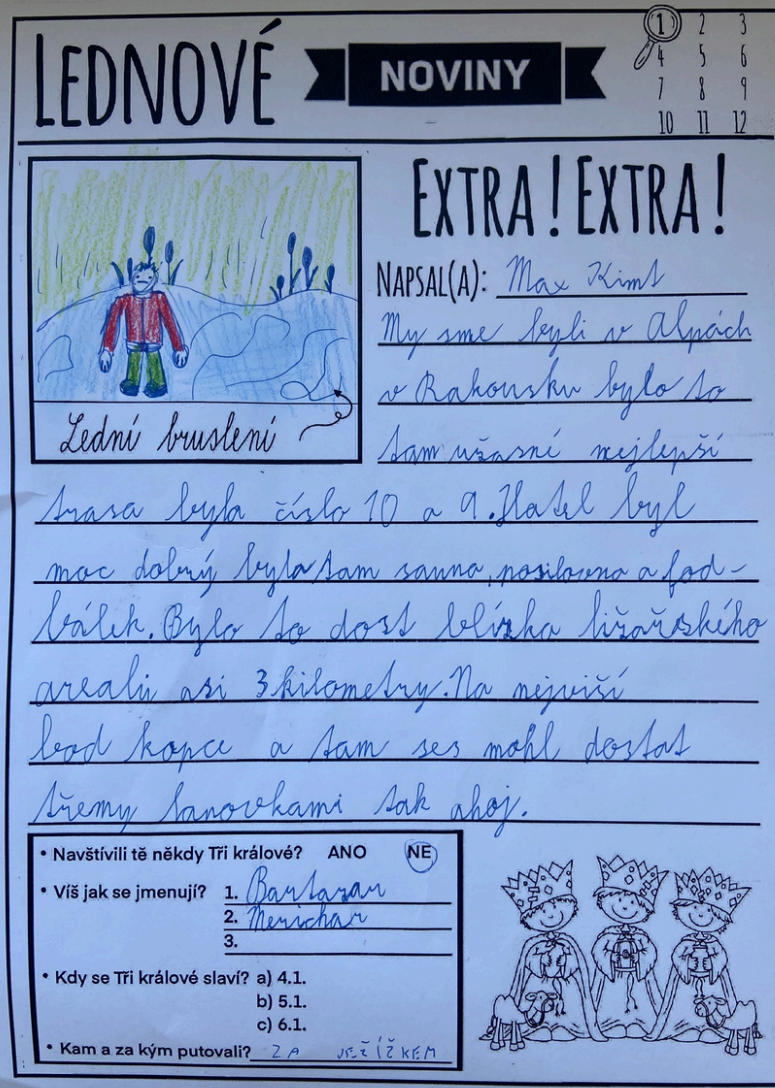 LEDNOVÉ NOVINY
1 2 3
4 5 6
7 8 9
10 11 12
EXTRA! EXTRA!
NAPSAL(A): Max Kimt
My sme byli v Alpách
v Rakousku bylo to
tam užasné nejlepší
Lední bruslení
trasa byla číslo 10 a 9. Hatel byl
moc dobrý byla tam sauna, posilovna a fod-
bálek. Bylo to dost blízko ližařského
arealu asi 3 kilometry. Na nejviší
bod kopce a tam ses mohl dostat
třemy lanovkami tak ahoj.
• Navštívili tě někdy Tři králové? ANO NE
• Víš jak se jmenují? 1. Bartazar
2. Merichar
3.
• Kdy se Tři králové slaví? a) 4.1.
b) 5.1.
c) 6.1.
• Kam a za kým putovali? ZA JEŽÍČKEM